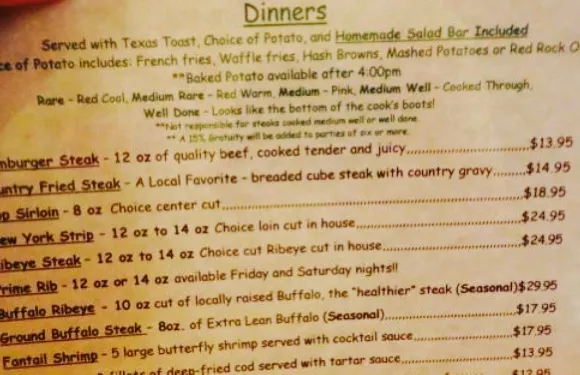 Dinners
Served with Texas Toast, Choice of Potato, and Homemade Salad Bar Included
of Potato includes: French fries, Waffle fries, Hash Browns, Mashed Potatoes or Red Rock
**Baked Potato available after 4:00pm
Rare - Red Cool, Medium Rare - Red Warm, Medium - Pink, Medium Well - Cooked Through,
Well Done - Looks like the bottom of the cook's boots!
**Not responsible for steaks cooked medium well or well done.
** A 15% Gratuity will be added to parties of six or more.
mburger Steak - 12 oz of quality beef, cooked tender and juicy..............................$13.95
untry Fried Steak - A Local Favorite - breaded cube steak with country gravy.........$14.95
op Sirloin - 8 oz Choice center cut..............................$18.95
ew York Strip - 12 oz to 14 oz Choice loin cut in house..............................$24.95
ibeye Steak - 12 oz to 14 oz Choice cut Ribeye cut in house..............................$24.95
rime Rib - 12 oz or 14 oz available Friday and Saturday nights!!
Buffalo Ribeye - 10 oz cut of locally raised Buffalo, the "healthier" steak (Seasonal)$29.95
Ground Buffalo Steak - 8oz. of Extra Lean Buffalo (Seasonal)..............................$17.95
Fantail Shrimp - 5 large butterfly shrimp served with cocktail sauce..............................$17.95
fillets of deep-fried cod served with tartar sauce..............................$13.95
$12.95